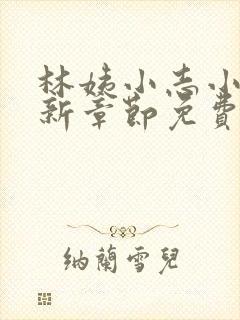 林姨小志小
新章節免費
纳蘭雪兒